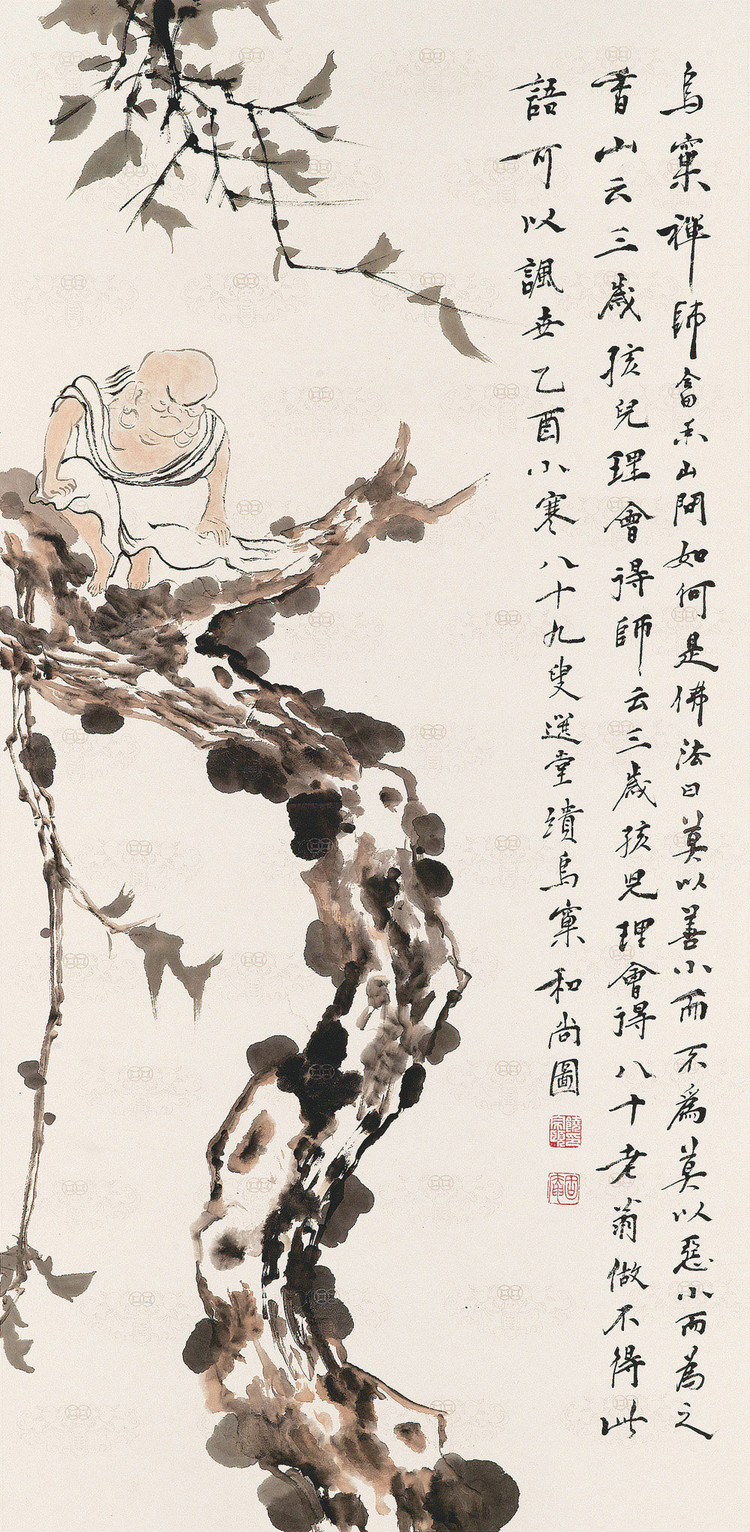 烏窠禪師畣香山問如何是佛法曰莫以善小而不爲莫以惡小而為之
香山云三歲孩兒理會得師云三歲孩児理會得八十老翁做不得此
語可以諷世乙酉小寒八十九叟選堂繢烏窠和尚圖